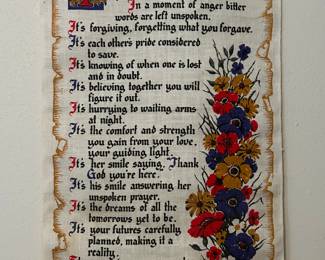 In a moment of anger bitter
words are left unspoken.
It's forgiving, forgetting what you forgave.
It's each other's pride considered
to save.
It's knowing of when one is lost
and in doubt.
It's believing together you will
figure it out.
It's hurrying to waiting arms
at night.
It's the comfort and strength
you gain from your love,
your guiding light.
It's her smile saying, "Thank
God you're here."
It's his smile answering her
unspoken prayer.
It's the dreams of all the
tomorrows yet to be.
It's your futures carefully
planned, making it a
reality.